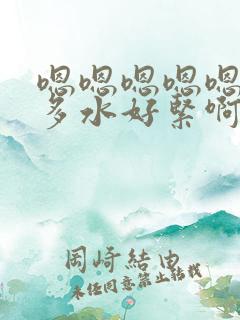 嗯嗯嗯嗯嗯
多水好紧啊
岡崎結由
未经同意禁止转载